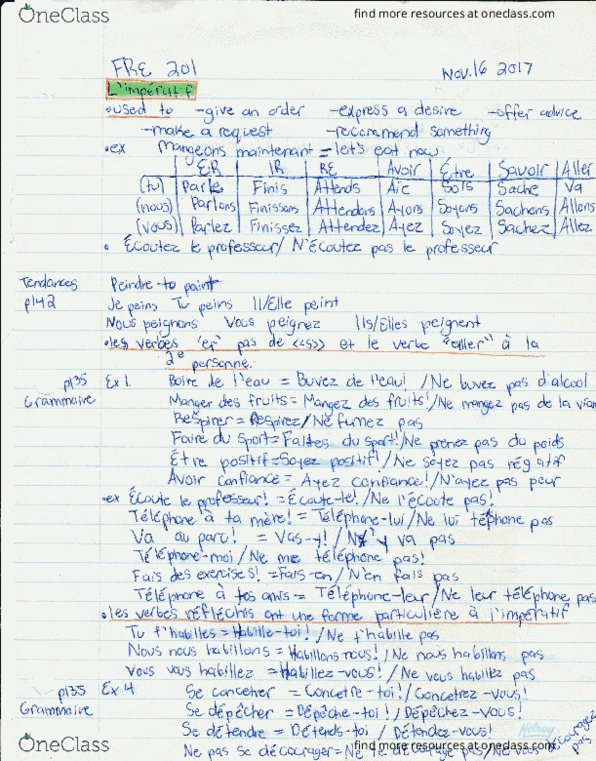 OneClass find more resources at oneclass.com
FRE 201 Nov.16 2017
L'impératif
•used to -give an order -express a desire -offer advice
-make a request -recommend something
•ex Mangeons maintenant = let's eat now
ER IR RE Avoir Être Savoir Aller
(tu) Parle Finis Attends Aie Sois Sache Va
(nous) Parlons Finissons Attendons Ayons Soyons Sachons Allons
(vous) Parlez Finissez Attendez Ayez Soyez Sachez Allez
• Écoutez le professeur/ N'écoutez pas le professeur
Tendances Peindre-to paint
p142 Je peins Tu peins Il/Elle peint
Nous peignons Vous peignez Ils/Elles peignent
•les verbes "er" pas de <<s>> et le verbe "aller" à la
2e personne.
p135 Ex 1. Boire de l'eau = Buvez de l'eau! /Ne buvez pas d'alcool
Grammaire Manger des fruits = Mangez des fruits!/Ne mangez pas de la
Respirer = Respirez/Ne fumez pas
Faire du sport=Faites du sport!/Ne prenez pas du poids
Être positif=Soyez positif!/Ne soyez pas négatif
Avoir confiance = Ayez confiance!/N'ayez pas peur
•ex Écoute le professeur! =Écoute-le!/Ne l'écoute pas!
Téléphone à ta mère! = Téléphone-lui/Ne lui téphone pas
Va au parc! = Vas-y!/ N'y va pas
Téléphone-moi/Ne me téléphone pas!
Fais des exercises! =Fais-en/N'en fais pas
Téléphone à tes amis= Téléphone-leur/Ne leur téléphone pas
•les verbes réfléchis ont une forme particulière à l'impératif
Tu t'habilles = Habille-toi!/Ne t'habille pas
Nous nous habillons = Habillons-nous!/Ne nous habillons pas
Vous vous habillez = Habillez-vous!/Ne vous habillez pas
p135 Ex 4 Se concetrer = Concetre-toi!/Concetrez-vous!
Grammaire Se dépêcher = Dépêche-toi!/Dépêchez-vous!
Se détendre = Détends-toi!/Détendez-vous!
Ne pas se décourager=Ne te décourage pas/Ne vous découragez pas
OneClass find more resources at oneclass.com
Hilroy